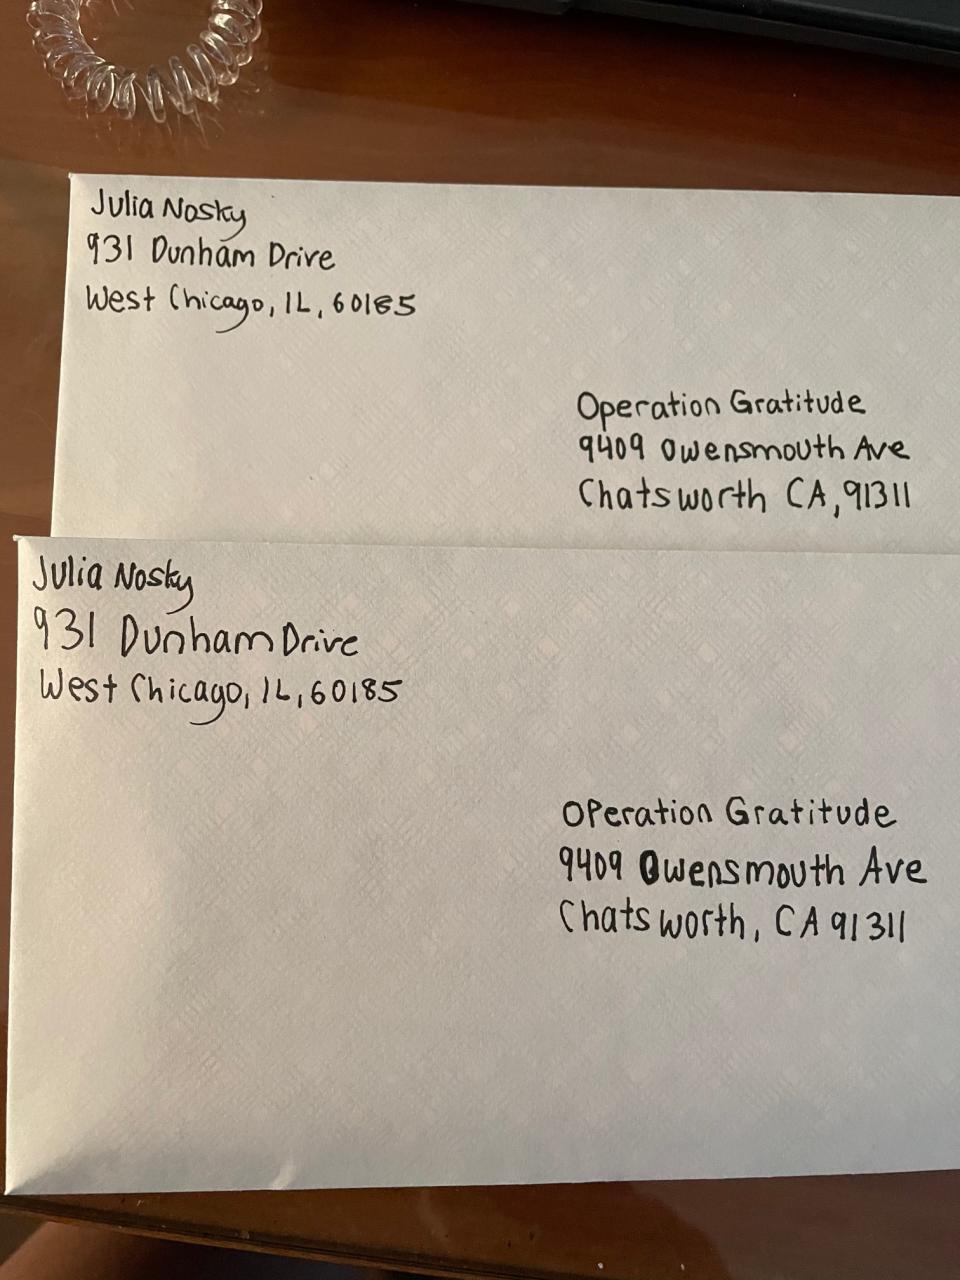 Julia Nosky
931 Dunham Drive
West Chicago, IL, 60185
Operation Gratitude
9409 Owensmouth Ave
Chatsworth CA, 91311
Julia Nosky
931 Dunham Drive
West Chicago, IL, 60185
Operation Gratitude
9409 Owensmouth Ave
Chatsworth, CA 91311